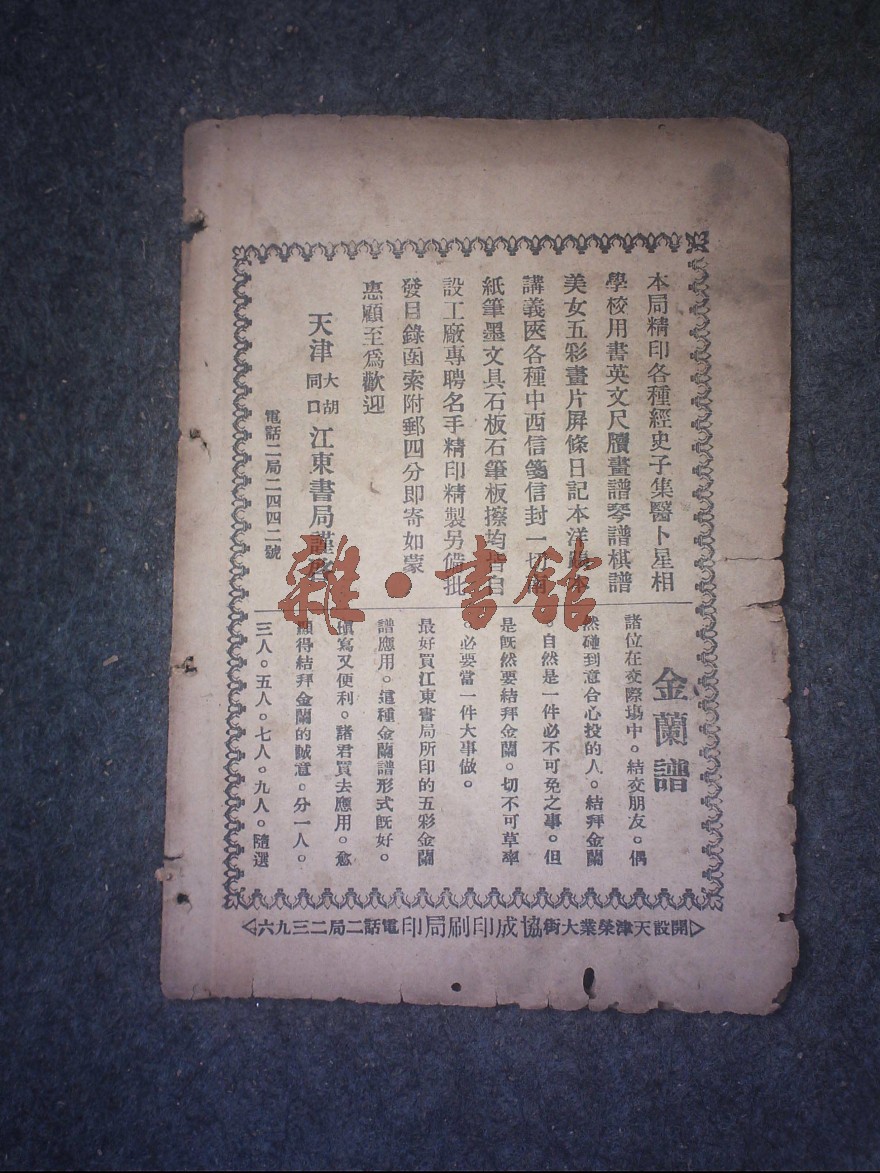 本局精印各種經史子集醫卜星相
學校用書英文尺牘畫譜琴譜棋譜
美女五彩畫片屏條日記本洋
講義医各種中西信箋信封一切
紙筆墨文具石板石筆板擦均自
設工廠專聘名手精印精製另備批
發目錄函索附郵四分即寄如蒙
惠顧至爲歡迎
天津大胡同口江東書局謹啓
電話二局二四四二號
金蘭譜
諸位在交際場中。結交朋友。偶
然碰到意合心投的人。結拜金蘭
。自然是一件必不可免之事。但
是旣然要結拜金蘭。切不可草率
必要當一件大事做。
最好買江東書局所印的五彩金蘭
譜應用。這種金蘭譜形式旣好。
塡寫又便利。諸君買去應用。愈
顯得結拜金蘭的誠意。分一人。
三人。五人。七人。九人。隨選
開設天津榮業大街協成印刷局印電話二局二三九六
雜·書館